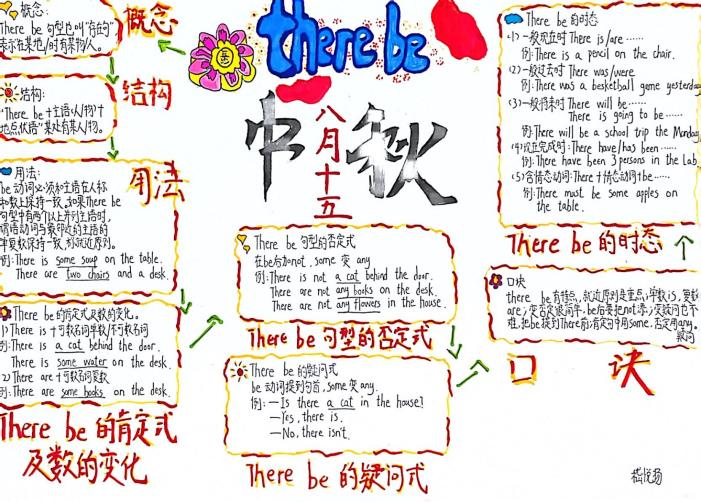 概念:
There be 句型也叫"存在句"
表示在某地/时有某物/人。
概念
结构:
"There be+主语(人/物)+
地点状语"某处有某人/物。
结构
用法:
be 动词必须和主语在人称
和数上保持一致,如果There be
句型中有两个以上并列主语时,
谓语动词与最邻近的主语的
单复数保持一致
例:There is some soup on the table.
There are two chairs and a desk.
用法
There be的肯定式及数的变化。
1) There is +可数名词单数/不可数名词
例:There is a cat behind the door.
There is some water on the desk.
2) There are +可数名词复数
例:There are some books on the desk.
There be 的肯定式
及数的变化
there be
中秋
八月十五
There be 句型的否定式
在be后加not, some 变 any
例:There is not a cat behind the door.
There are not any books on the desk.
There are not any flowers in the house.
There be 句型的否定式
There be 的疑问式
be 动词提到句首, some变 any.
例: —Is there a cat in the house?
—Yes, there is.
—No, there isn't.
There be 的疑问式
There be 的时态
(1)一般现在时 There is/are ……
例:There is a pencil on the chair.
(2)一般过去时 There was/were
例:There was a basketball game yesterday
(3)一般将来时 There will be ……
There is going to be ……
例:There will be a school trip the Monday
(4)现在完成时:There have/has been ……
例:There have been 3 persons in the Lab
(5)含情态动词:There+情态动词+be ……
例:There must be some apples on
the table.
There be 的时态
口诀
there be 有特点,就近原则是重点;单数is,复数
are;变否定很简单,be后要把not添;变疑问也不
难,把be提到There前;肯定句中用some,否定用any。
疑问
口诀